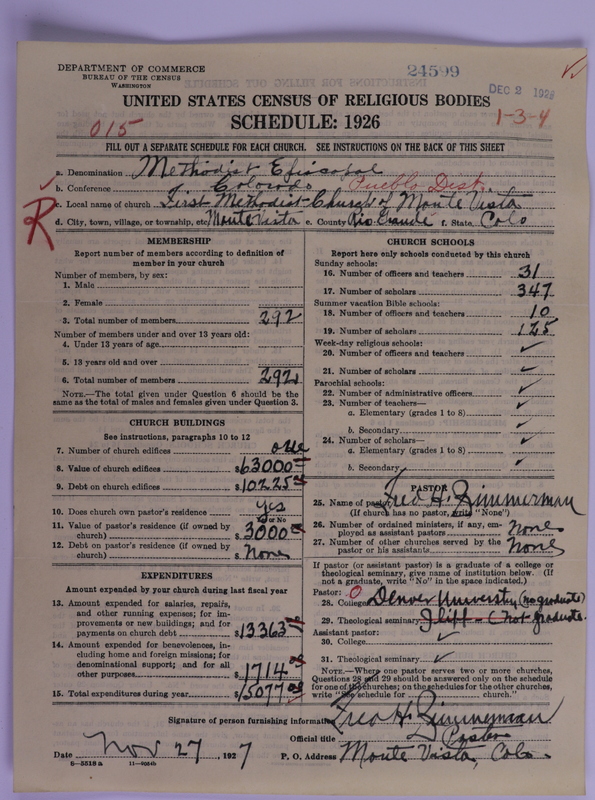 DEPARTMENT OF COMMERCE
BUREAU OF THE CENSUS
WASHINGTON
24599
DEC 2 1928
UNITED STATES CENSUS OF RELIGIOUS BODIES
1-3-4
015
SCHEDULE: 1926
FILL OUT A SEPARATE SCHEDULE FOR EACH CHURCH. SEE INSTRUCTIONS ON THE BACK OF THIS SHEET
a. Denomination Methodist Episcopal
b. Conference Colorado Pueblo Dist.
R
c. Local name of church First Methodist Church of Monte Vista
d. City, town, village, or township, etc. Monte Vista e. County Rio Grande f. State Colo
MEMBERSHIP
Report number of members according to definition of
member in your church
Number of members, by sex:
1. Male
2. Female
3. Total number of members 292
Number of members under and over 13 years old:
4. Under 13 years of age
5. 13 years old and over
6. Total number of members 292
NOTE.—The total given under Question 6 should be the
same as the total of males and females given under Question 3.
CHURCH BUILDINGS
See instructions, paragraphs 10 to 12
7. Number of church edifices one
8. Value of church edifices $63000
9. Debt on church edifices $10225
10. Does church own pastor's residence yes
Yes or No
11. Value of pastor's residence (if owned by
church) $3000
12. Debt on pastor's residence (if owned by
church) $ None
EXPENDITURES
Amount expended by your church during last fiscal year
13. Amount expended for salaries, repairs,
and other running expenses; for im-
provements or new buildings; and for
payments on church debt $13363
14. Amount expended for benevolences, in-
cluding home and foreign missions; for
denominational support; and for all
other purposes 1714
15. Total expenditures during year $15077
CHURCH SCHOOLS
Report here only schools conducted by this church
Sunday schools:
16. Number of officers and teachers 31
17. Number of scholars 347
Summer vacation Bible schools:
18. Number of officers and teachers 10
19. Number of scholars 125
Week-day religious schools:
20. Number of officers and teachers ✓
21. Number of scholars ✓
Parochial schools:
22. Number of administrative officers ✓
23. Number of teachers—
a. Elementary (grades 1 to 8) ✓
b. Secondary ✓
24. Number of scholars—
a. Elementary (grades 1 to 8) ✓
b. Secondary ✓
PASTOR
25. Name of pastor Fred H. Zimmerman
(If church has no pastor, write "None")
26. Number of ordained ministers, if any, em-
ployed as assistant pastors None
27. Number of other churches served by the
pastor or his assistants None
If pastor (or assistant pastor) is a graduate of a college or
theological seminary, give name of institution below. (If
not a graduate, write "No" in the space indicated.)
Pastor: O
28. College Denver University (no graduate)
29. Theological seminary Iliff - (not graduate.
Assistant pastor:
30. College ✓
31. Theological seminary ✓
NOTE.—Where one pastor serves two or more churches,
Questions 28 and 29 should be answered only on the schedule
for one of the churches; on the schedules for the other churches,
write "See schedule for church."
Signature of person furnishing information Fred H. Zimmerman
Official title Pastor
Date Nov 27, 1927 P. O. Address Monte Vista, Colo.